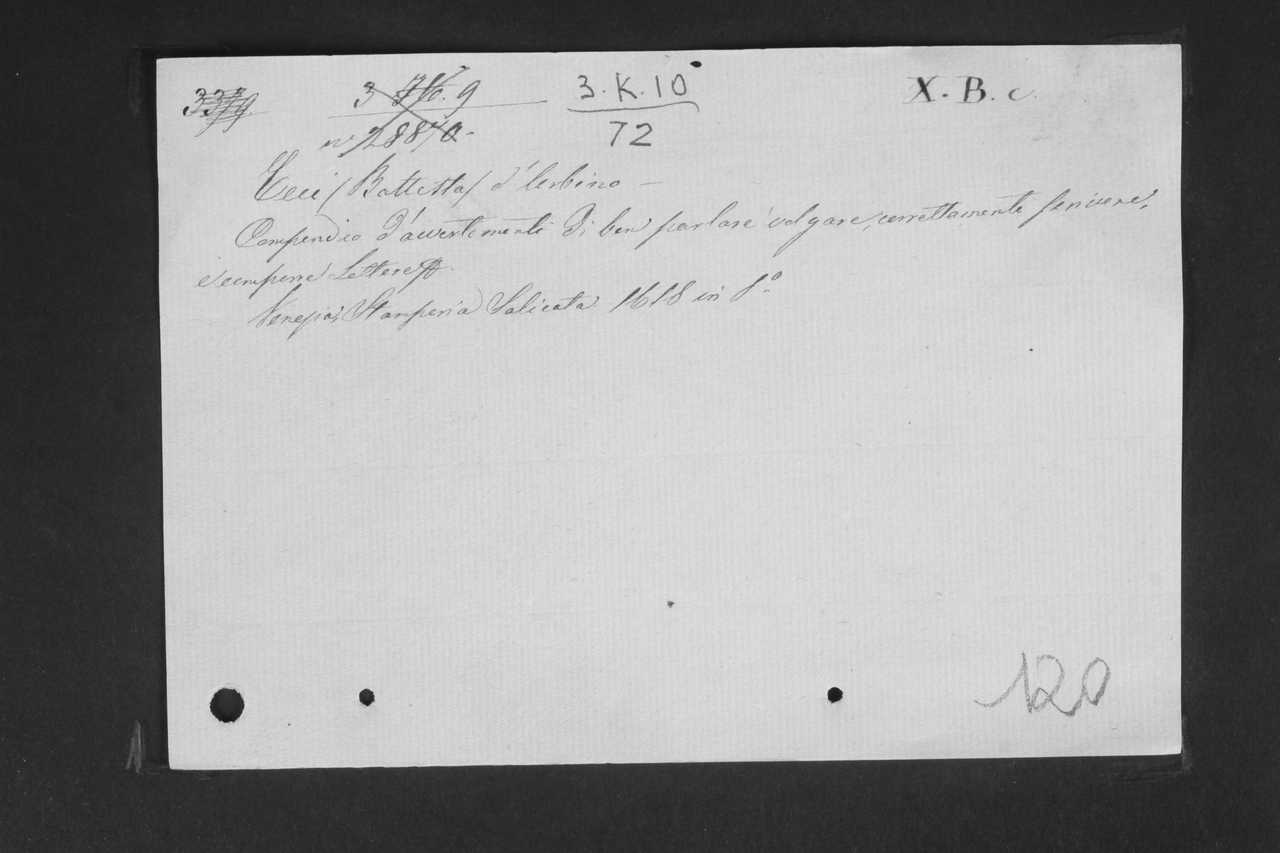 3.K.10 X. B. c.
72
Ceci (Battista) d'Urbino -
Compendio d'avvertimenti di ben parlare volgare, correttamente scrivere,
e comporre Lettere
Venezia, Stamperia Salicata 1618 in 8°.
120